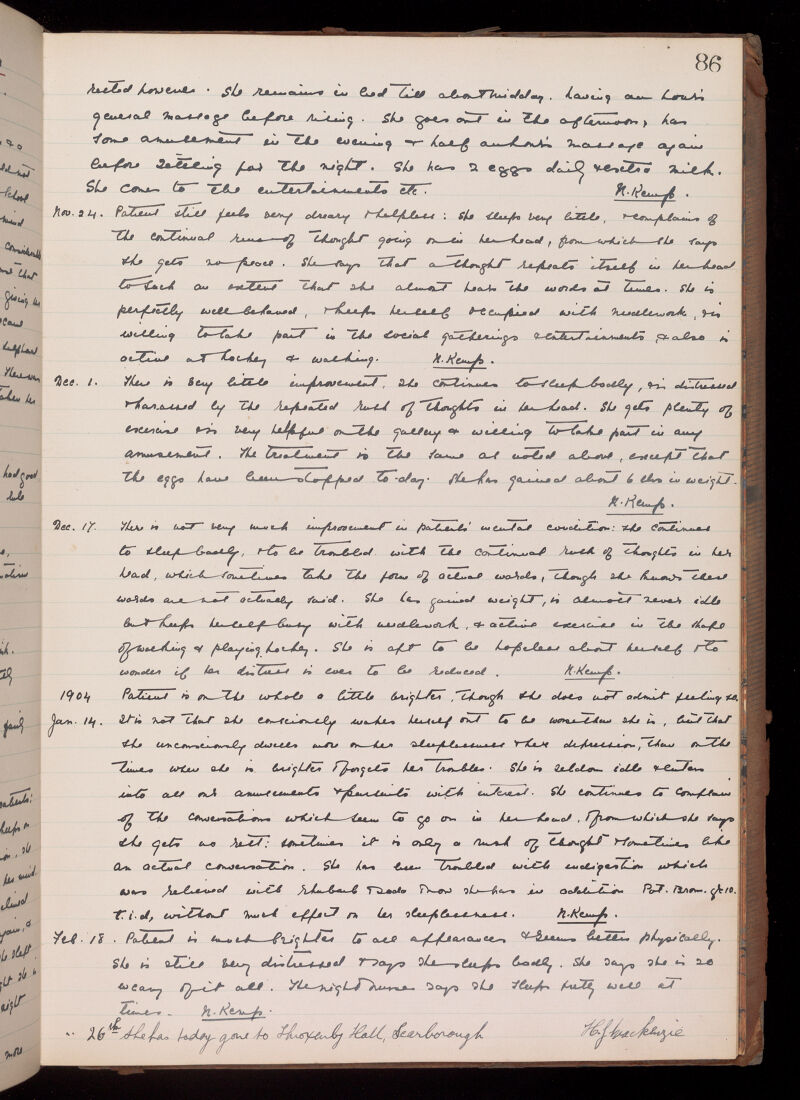 86
rested however. She remains in bed till about midday. having an hour's
general massage before rising. She goes out in the afternoon, has
some amusement in the evening & half an hour's massage again
before settling for the night. She has 2 eggs daily & extra milk.
She comes to the entertainments etc. N. Kemp.
Nov. 24. Patient still feels very dreary & helpless: she sleeps very little, & complains of
the continual rush of thought going on in her head, from which she says
she gets no peace. She says that a thought repeats itself in her head
to such an extent that she almost hears the words at times. She is
perfectly well behaved, & keeps herself occupied with needlework, & is
willing to take part in the social gatherings & entertainments, & also is
active at hockey & walking. N. Kemp.
Dec. 1. There is very little improvement. She continues to sleep badly, & is distressed
& harassed by the repeated rush of thoughts in her head. She gets plenty of
exercise & is very helpful on the gallery & willing to take part in any
amusement. The treatment is the same as noted above, except that
the eggs have been stopped to-day. She has gained about 6 lbs in weight.
N. Kemp.
Dec. 17. There is not very much improvement in patient's mental condition: she continues
to sleep badly, & to be troubled with the continual rush of thoughts in her
head, which sometimes take the form of actual words, though she knows these
words are not actually said. She has gained weight, is almost never idle
but keeps herself busy with needlework, & active exercise in the shape
of walking & playing hockey. She is apt to be hopeless about herself & to
wonder if her distress is ever to be reduced. N. Kemp.
1904 Patient is on the whole a little brighter, though she does not admit feeling so.
Jan. 14. It is not that she consciously makes herself out to be worse than she is, but that
she unconsciously dwells more on her sleeplessness & her depression, than on the
times when she is brighter & forgets her troubles. She is seldom idle & enters
into all our amusements & pursuits with interest. She continues to complain
of the conversations which seem to go on in her head, & from which she says
she gets no rest: sometimes it is only a rush of thought & sometimes like
an actual conversation. She has been troubled with indigestion which
was relieved with rhubarb & soda & now she has in addition Pot. Brom. gr 10.
t.i.d, without much effect on her sleeplessness. N. Kemp.
Feb. 18. Patient is much brighter to all appearances & seems better physically.
She is still very distressed & says she sleeps badly. She says she is so
weary of it all. The night nurse says she sleeps fairly well at
times. N. Kemp.
" 26th She has today gone to Throxenby Hall, Scarborough H. J. Mackenzie